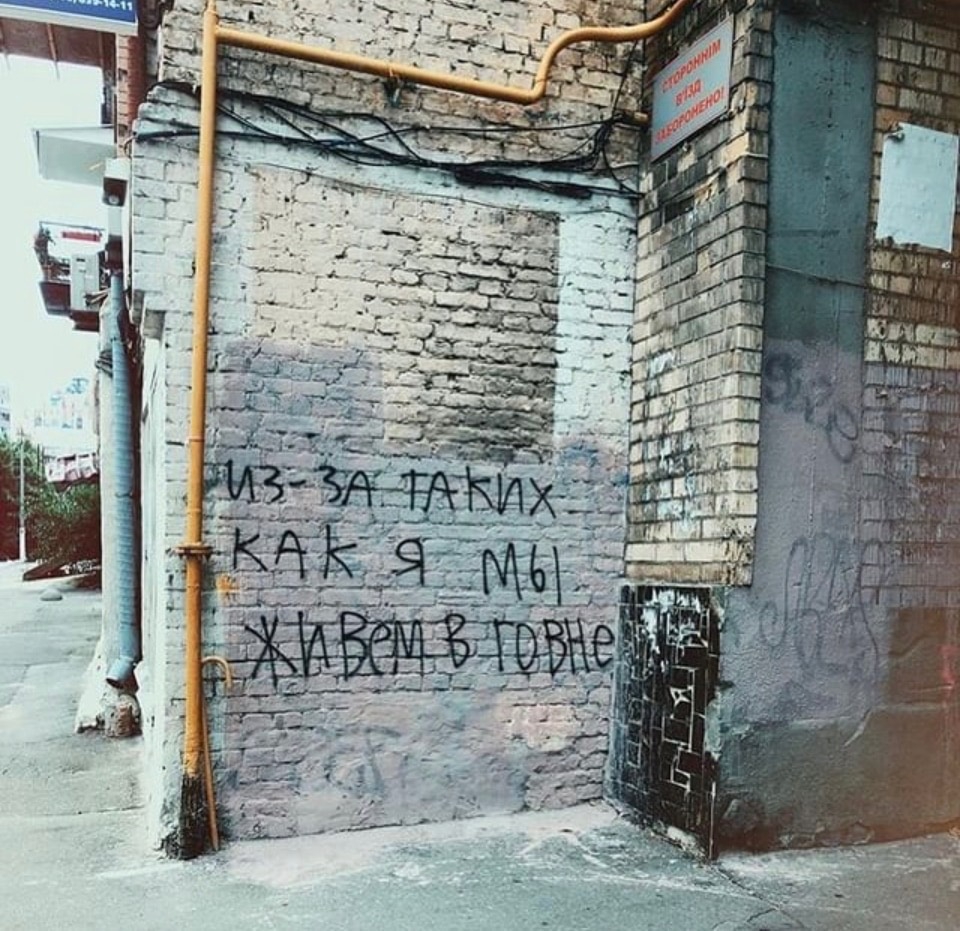 639-14-11
СТОРОННІМ
В'ЇЗД
ЗАБОРОНЕНО!
ИЗ-ЗА ТАКИХ
КАК Я МЫ
ЖИВеМ В ГОВНе